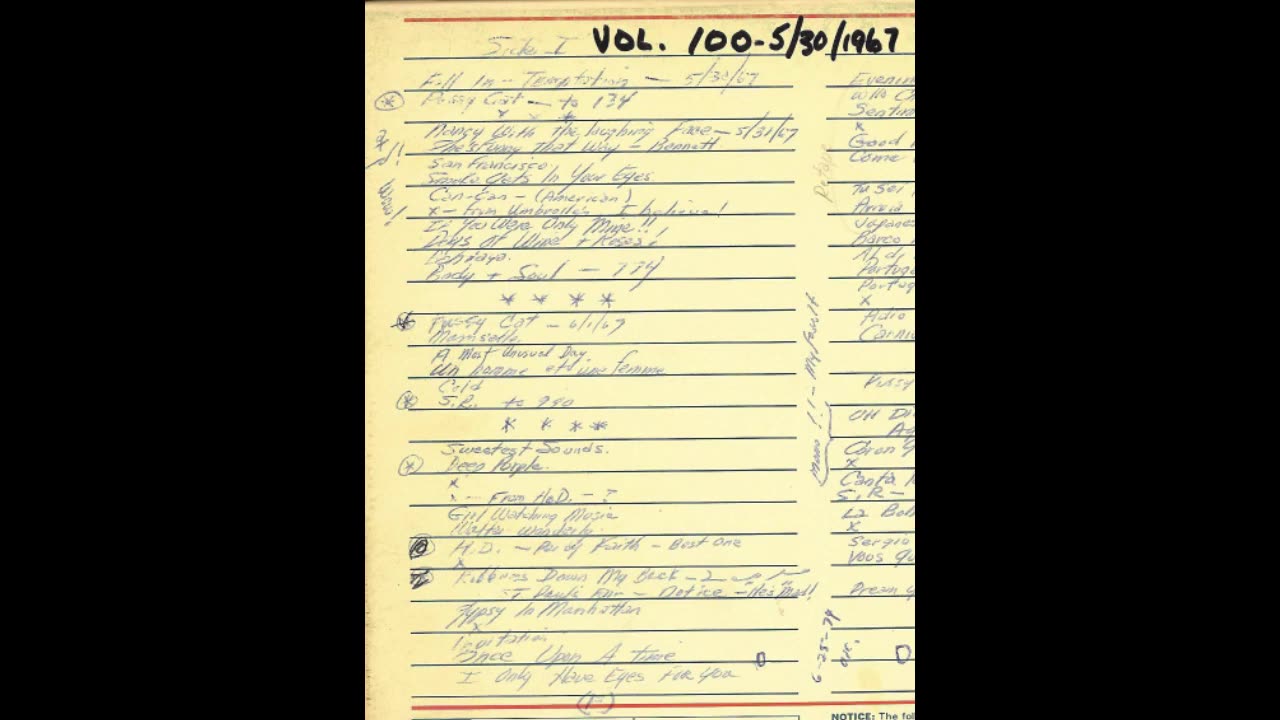 Side I VOL. 100-5/30/1967
Fill In - Temptation - 5/30/67
Pussy Cat - to 134
x x *
Nancy With the laughing Face - 5/31/67
She's Funny That Way - Bennett
San Francisco.
Smoke Gets In Your Eyes.
Can-Can - (American)
x - from Umbrellas I believe!
If You Were Only Mine!!
Days Of Wine + Roses!
Body + Soul - 774
* * * *
Pussy Cat - 6/1/67
A Most Unusual Day
Un homme et une femme
Cold
S.R. to 990
* * * *
Sweetest Sounds.
Deep Purple.
x
x - From H.D. - ?
Girl Watching Music
Walter Wanderly.
10 H.D. - Percy Faith - Best One
x
Ribbons Down My Back - 2
Notice - "He's Mad"!
Gypsy In Manhattan
x
Invitation
Once Upon A time
I Only Have Eyes For You
Retape
My Fault
6-25-74
Evenin
Who C
Senti
x
Good
Come
Tu Sei
Japanes
Barco
Portug
Portug
x
Adio
Carni
Pussy
Oh Di
Ag
x
Canta
S.R -
La Bo
x
Sergio
Vous Qu
Dream
NOTICE: The fol